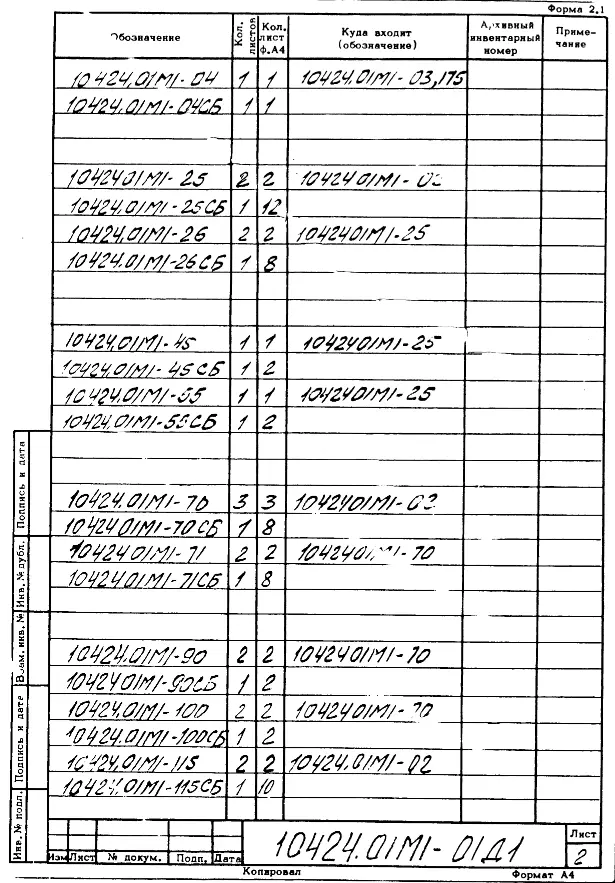 Форма 2.1
Обозначение Кол. листов Кол. лист ф.А4 Куда входит (обозначение) Архивный инвентарный номер Приме-чание
10424.01М1-04 1 1 10424.01М1-03,175
10424.01М1-04СБ 1 1
10424.01М1-25 2 2 10424.01М1-
10424.01М1-25СБ 1 12
10424.01М1-26 2 2 10424.01М1-25
10424.01М1-26СБ 1 8
10424.01М1-45 1 1 10424.01М1-25
10424.01М1-45СБ 1 2
10424.01М1-55 1 1 10424.01М1-25
10424.01М1-55СБ 1 2
10424.01М1-70 3 3 10424.01М1-
10424.01М1-70СБ 1 8
10424.01М1-71 2 2 10424.01М1-70
10424.01М1-71СБ 1 8
10424.01М1-90 2 2 10424.01М1-70
10424.01М1-90СБ 1 2
10424.01М1-100 2 2 10424.01М1-70
10424.01М1-100СБ 1 2
10424.01М1-115 2 2 10424.01М1-02
10424.01М1-115СБ 1 10
Инв. № подл. Подпись и дата Взам. инв. № Инв. № дубл. Подпись и дата
10424.01М1-01Д1
Лист
2
Изм Лист № докум. Подп. Дата
Копировал Формат А4